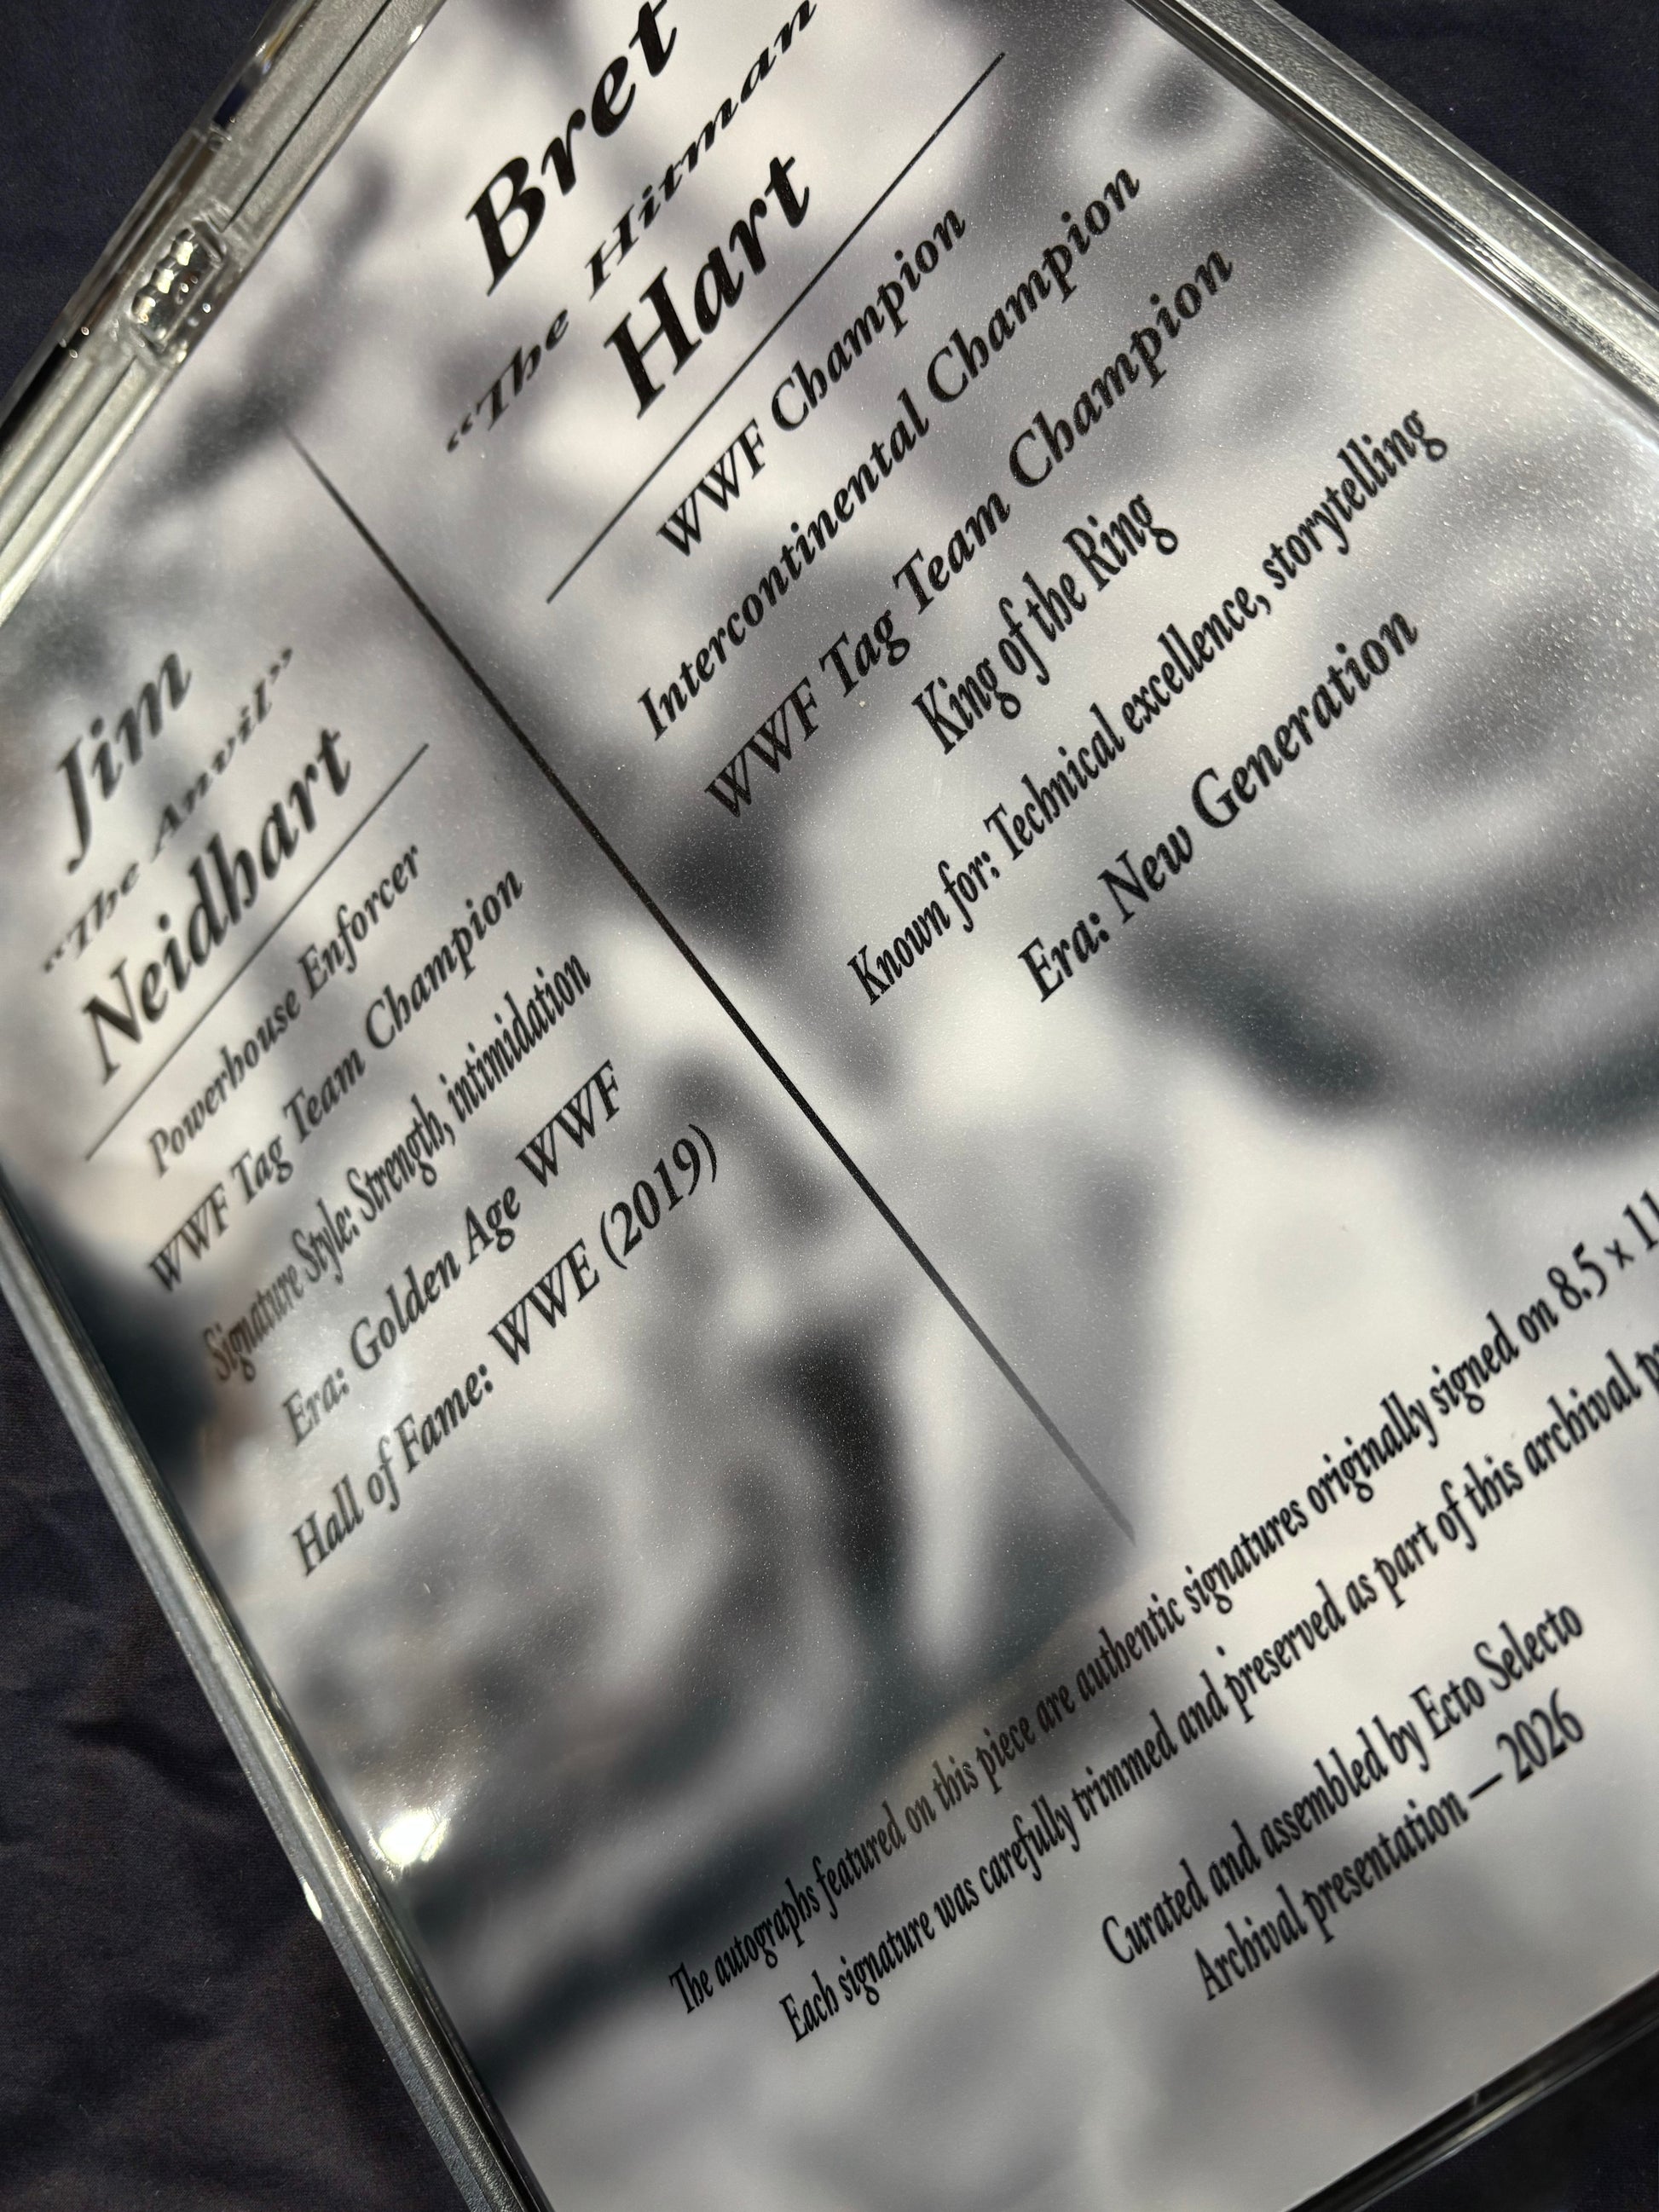 Jim
“The Anvil”
Neidhart
Powerhouse Enforcer
WWF Tag Team Champion
Signature Style: Strength, intimidation
Era: Golden Age WWF
Hall of Fame: WWE (2019)
Bret
“The Hitman
Hart
WWF Champion
Intercontinental Champion
WWF Tag Team Champion
King of the Ring
Known for: Technical excellence, storytelling
Era: New Generation
The autographs featured on this piece are authentic signatures originally signed on 8.5 x 11
Each signature was carefully trimmed and preserved as part of this archival
Curated and assembled by Ecto Selecto
Archival presentation — 2026